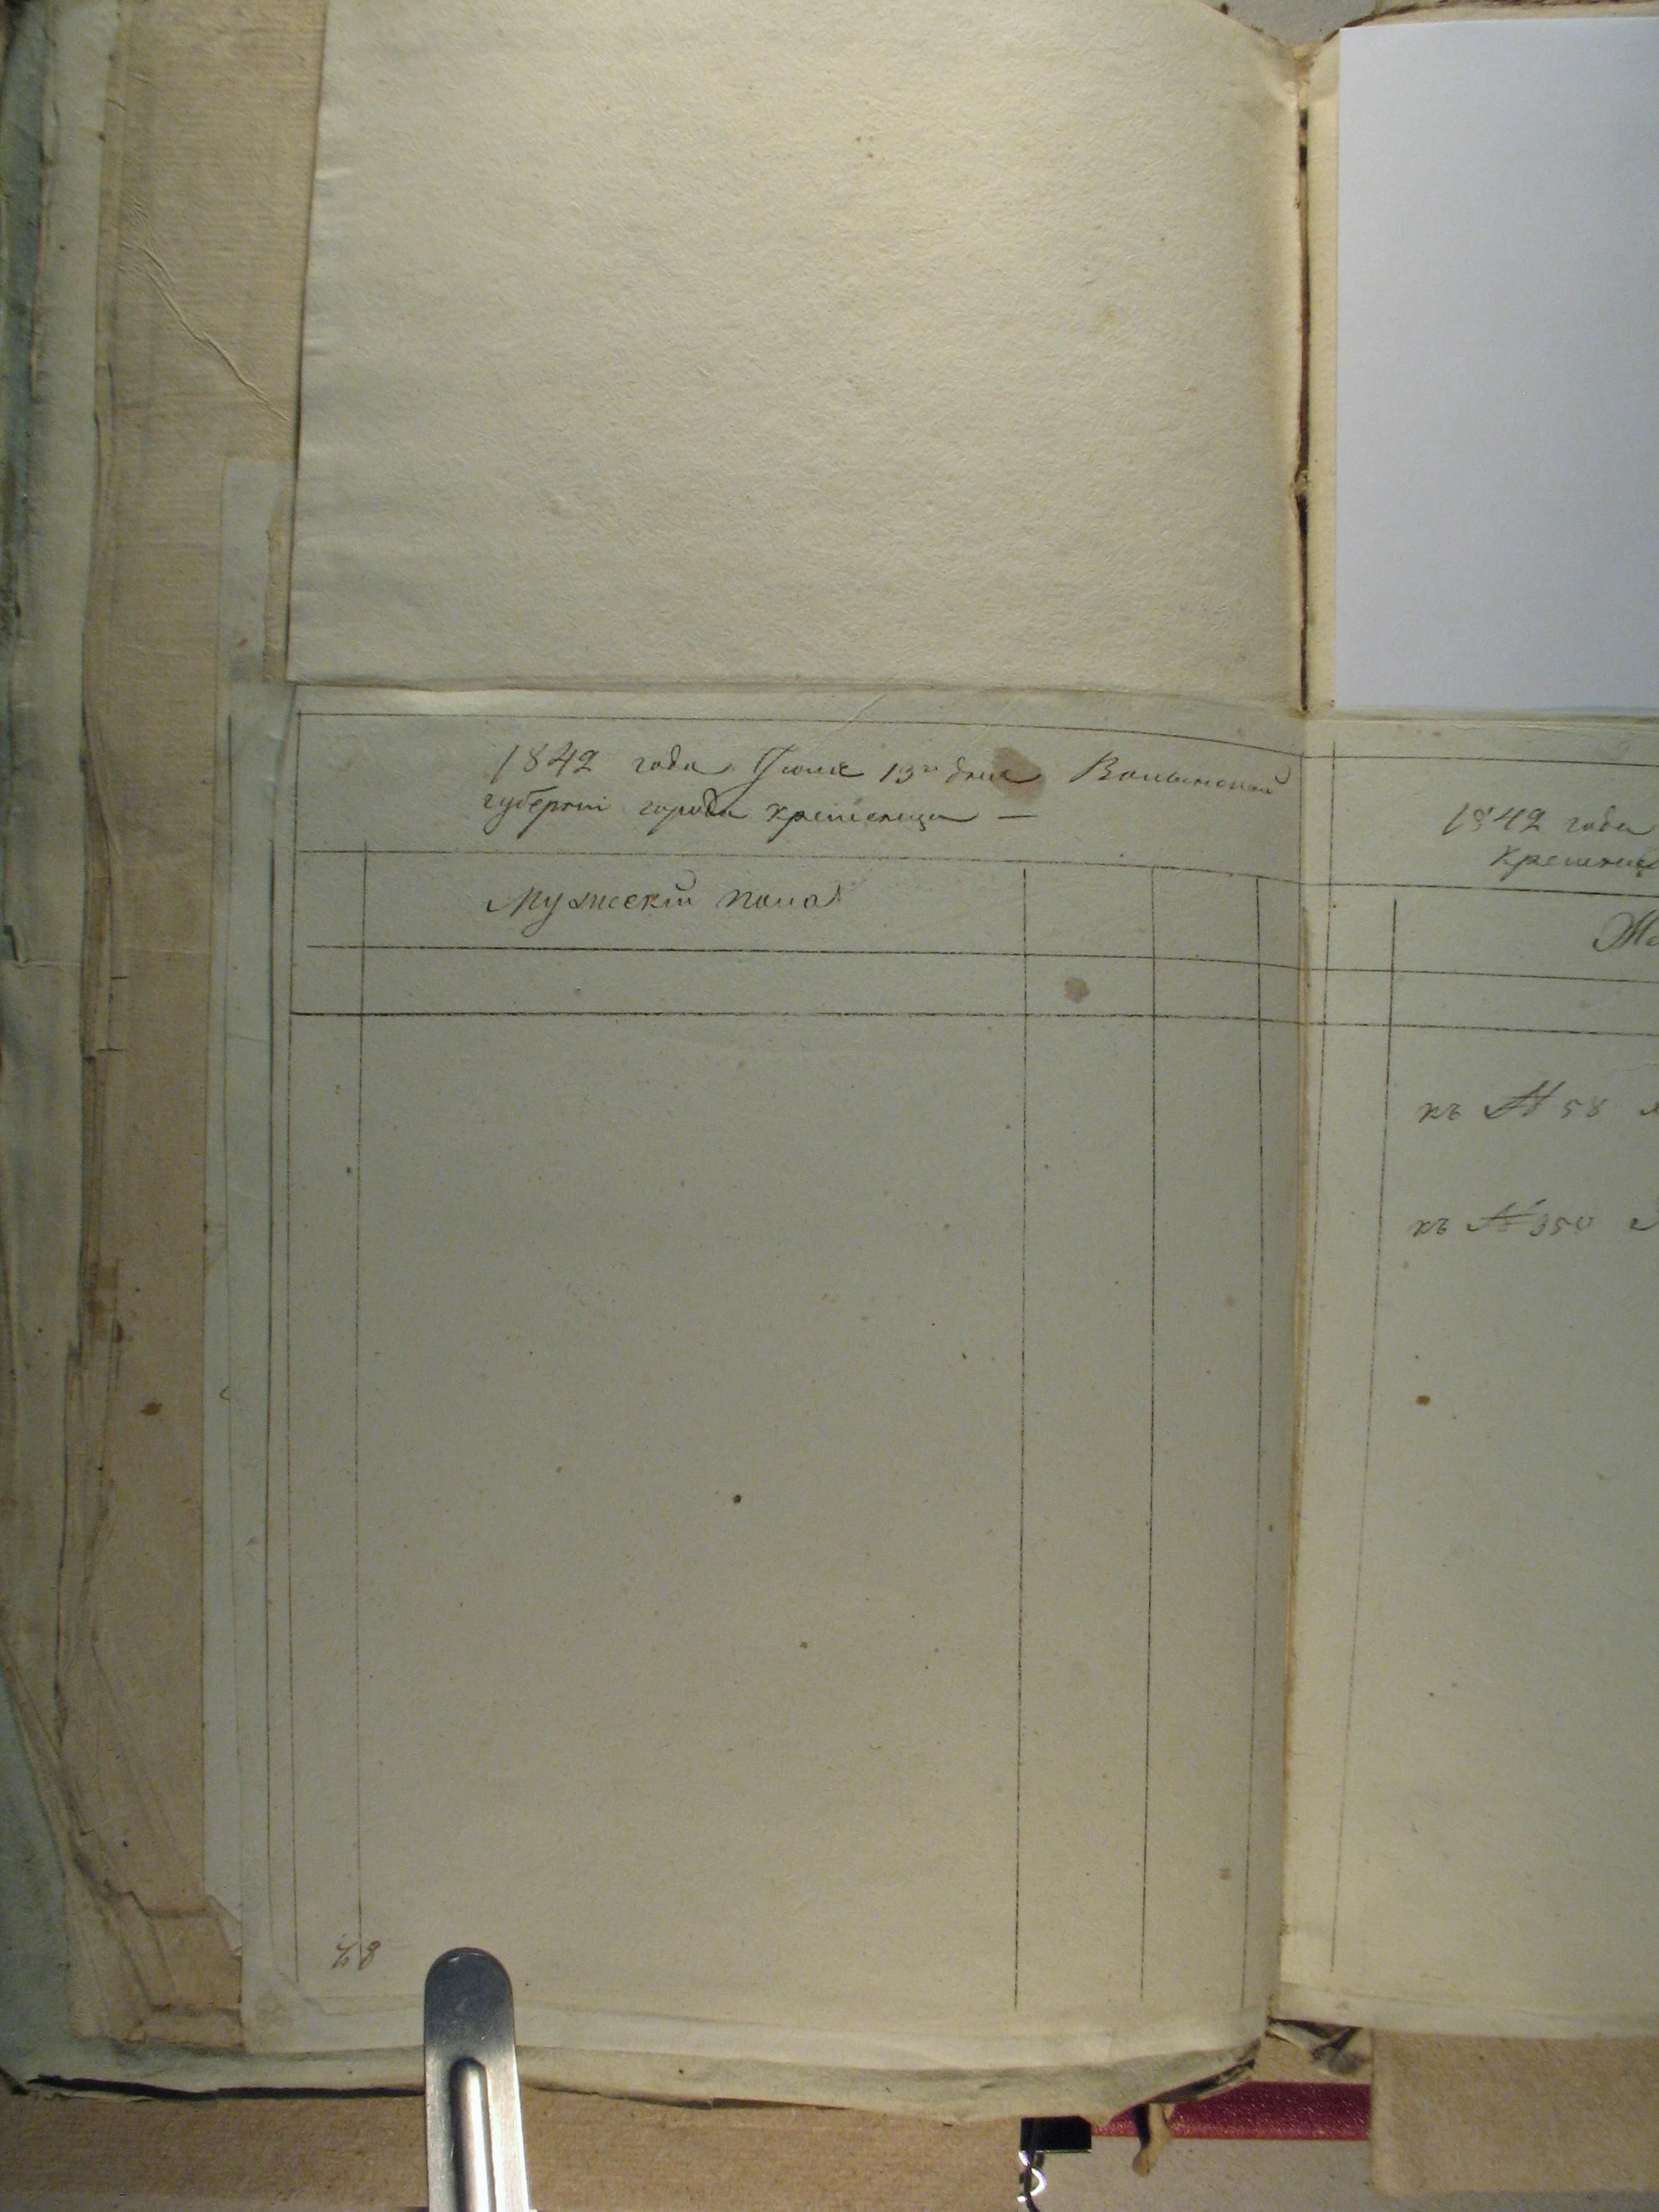 1842 года Июня 13го дня Волынской
губернии города Кременца —
Мужеский полъ
68
1842 года
Кременца
Же
къ № 58
къ № 350